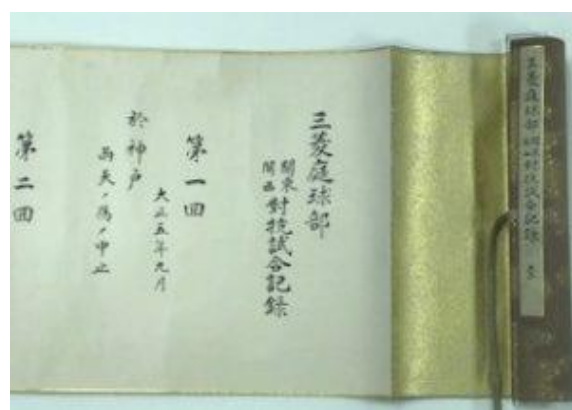 三菱庭球部関東関西対抗試合記録
三菱庭球部
関東
関西
対抗試合記録
第一回
大正五年九月
於神戸
雨天ノ為メ中止
第二回